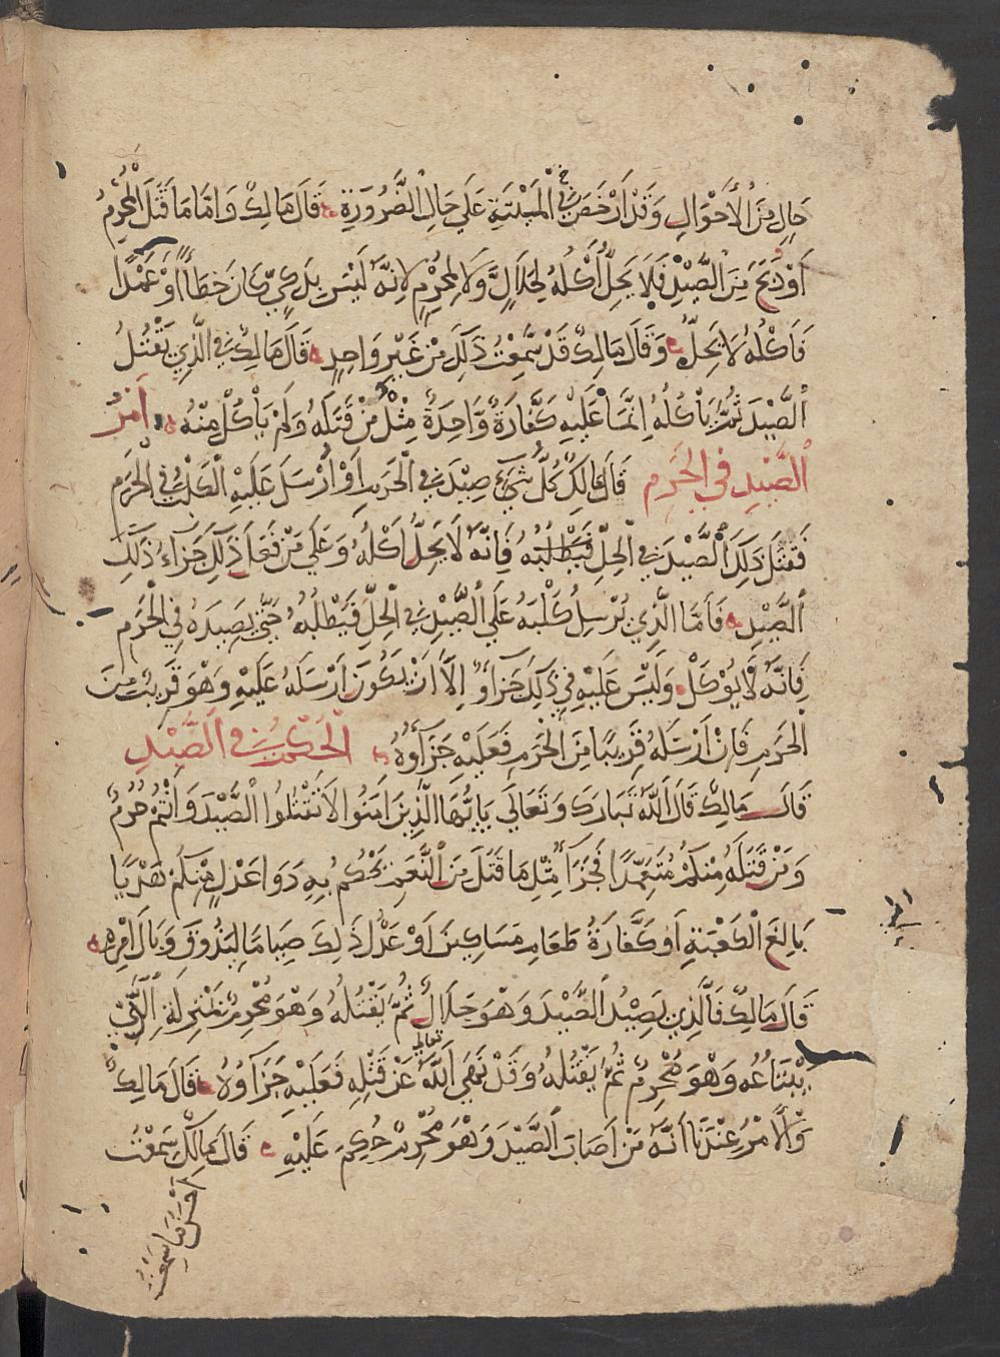 حَالٍ مِنَ الْأَحْوَالِ وَقَدْ أَرْخَصَ فِي الْمَيْتَةِ عَلَى حَالِ الضَّرُورَةِ قَالَ مَالِك وَامَّا مَا قَتَلَ الْمُحْرِمُ
أَوْ ذَبَحَ مِنَ الصَّيْدِ فَلَا يَحِلُّ أَكْلُهُ لِحَلَالٍ وَلَا لِمُحْرِمٍ لِانَّهُ لَيْسَ بِذَكِيٍّ كَانَ خَطَأً أَوْ عَمْدًا
فَأَكْلُهُ لَا يَحِلُّ وَقَالَ مَالِك قَدْ سَمِعْتُ ذَلِكَ مِنْ غَيْرِ وَاحِدٍ قَالَ مَالِك فِي الَّذِي يَقْتُلُ
الصَّيْدَ ثُمَّ يَأْكُلُهُ اِنَّمَا عَلَيْهِ كَفَّارَةٌ وَّاحِدَةٌ مِثْلُ مَنْ قَتَلَهُ وَلَمْ يَأْكُلْ مِنْهُ أَمْرُ
الصَّيْدِ فِي الْحَرَمِ قَالَ مَالِكٌ كُلُّ شَيْءٍ صِيْدَ فِي الْحَرَمِ أَوْ أُرْسِلَ عَلَيْهِ الْكَلْبُ فِي الْحَرَمِ
فَقُتِلَ ذَلِكَ الصَّيْدُ فِي الْحِلِّ فَيَطْلُبُهُ فَاِنَّهُ لَا يَحِلُّ أَكْلُهُ وَعَلَى مَنْ فَعَلَ ذَلِكَ جَزَاءُ ذَلِكَ
الصَّيْدِ فَأَمَّا الَّذِي يُرْسِلُ كَلْبَهُ عَلَى الصَّيْدِ فِي الْحِلِّ فَيَطْلُبُهُ حَتَّى يَصِيدَهُ فِي الْحَرَمِ
فَاِنَّهُ لَا يُوْكَلُ وَلَيْسَ عَلَيْهِ فِي ذَلِكَ جَزَآؤٌ اِلَّا أَنْ يَكُونَ أَرْسَلَهُ عَلَيْهِ وَهْوَ قَرِيبٌ مِنَ
الْحَرَمِ فَاِنْ أَرْسَلَهُ قَرِيبًا مِنَ الْحَرَمِ فَعَلَيْهِ جَزَآؤُهُ الْحُكْمُ فِي الصَّيْدِ
قَالَ مَالِك قَالَ اللَّهُ تَبَارَكَ وَتَعَالَى يَاأَيُّهَا الَّذِينَ امَنُوا لَا تَقْتُلُوا الصَّيْدَ وَأَنْتُمْ حُرُمٌ
وَمَنْ قَتَلَهُ مِنْكُمْ مُتَعَمِّدًا فَجَزَآءُ مِثْلِ مَا قَتَلَ مِنَ النَّعَمِ يَحْكُمُ بِهِ ذَوَا عَدْلٍ مِنْكُمْ هَدْيًا
بَالِغَ الْكَعْبَةِ أَوْ كَفَّارَةُ طَعَامِ مَسَاكِينَ أَوْ عَدْلُ ذَلِكَ صِيَامًا لِيَذُوقَ وَبَالَ أَمْرِهِ
قَالَ مَالِكٌ فَالَّذِي يَصِيْدُ الصَّيْدَ وَهْوَ حَلَالٌ ثُمَّ يَقْتُلُهُ وَهْوَ مُحْرِمٌ بِمَنْزِلَةِ الَّذِي
يَبْتَاعُهُ وَهْوَ مُحْرِمٌ ثُمَّ يَقْتُلُهُ وَقَدْ نَهَى اللَّهُ تعالى عَنْ قَتْلِهِ فَعَلَيْهِ جَزَآؤُهُ قَالَ مَالِكٌ
وَالْأَمْرُ عِنْدَنَا أَنَّهُ مَنْ أَصَابَ الصَّيْدَ وَهْوَ مُحْرِمٌ حُكِمَ عَلَيْهِ قَالَ مَالِكٌ سَمِعْتُ